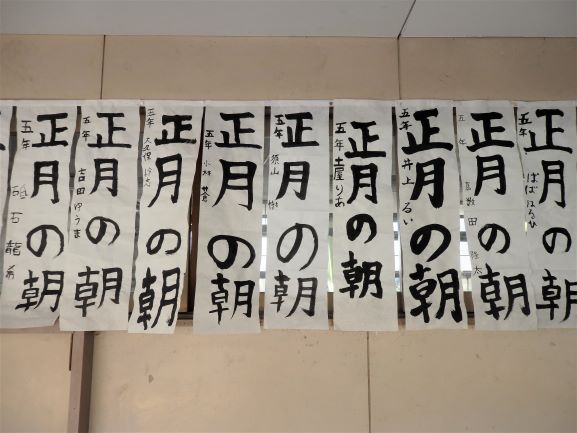 正月の朝
五年 ばば はるひ
正月の朝
五年
正月の朝
五年 井上 るい
正月の朝
五年 土屋 りあ
正月の朝
五年 須山
正月の朝
五年 小林
正月の朝
五年 大久保
正月の朝
五年 吉田 ゆうま
正月の朝
五年 龍希